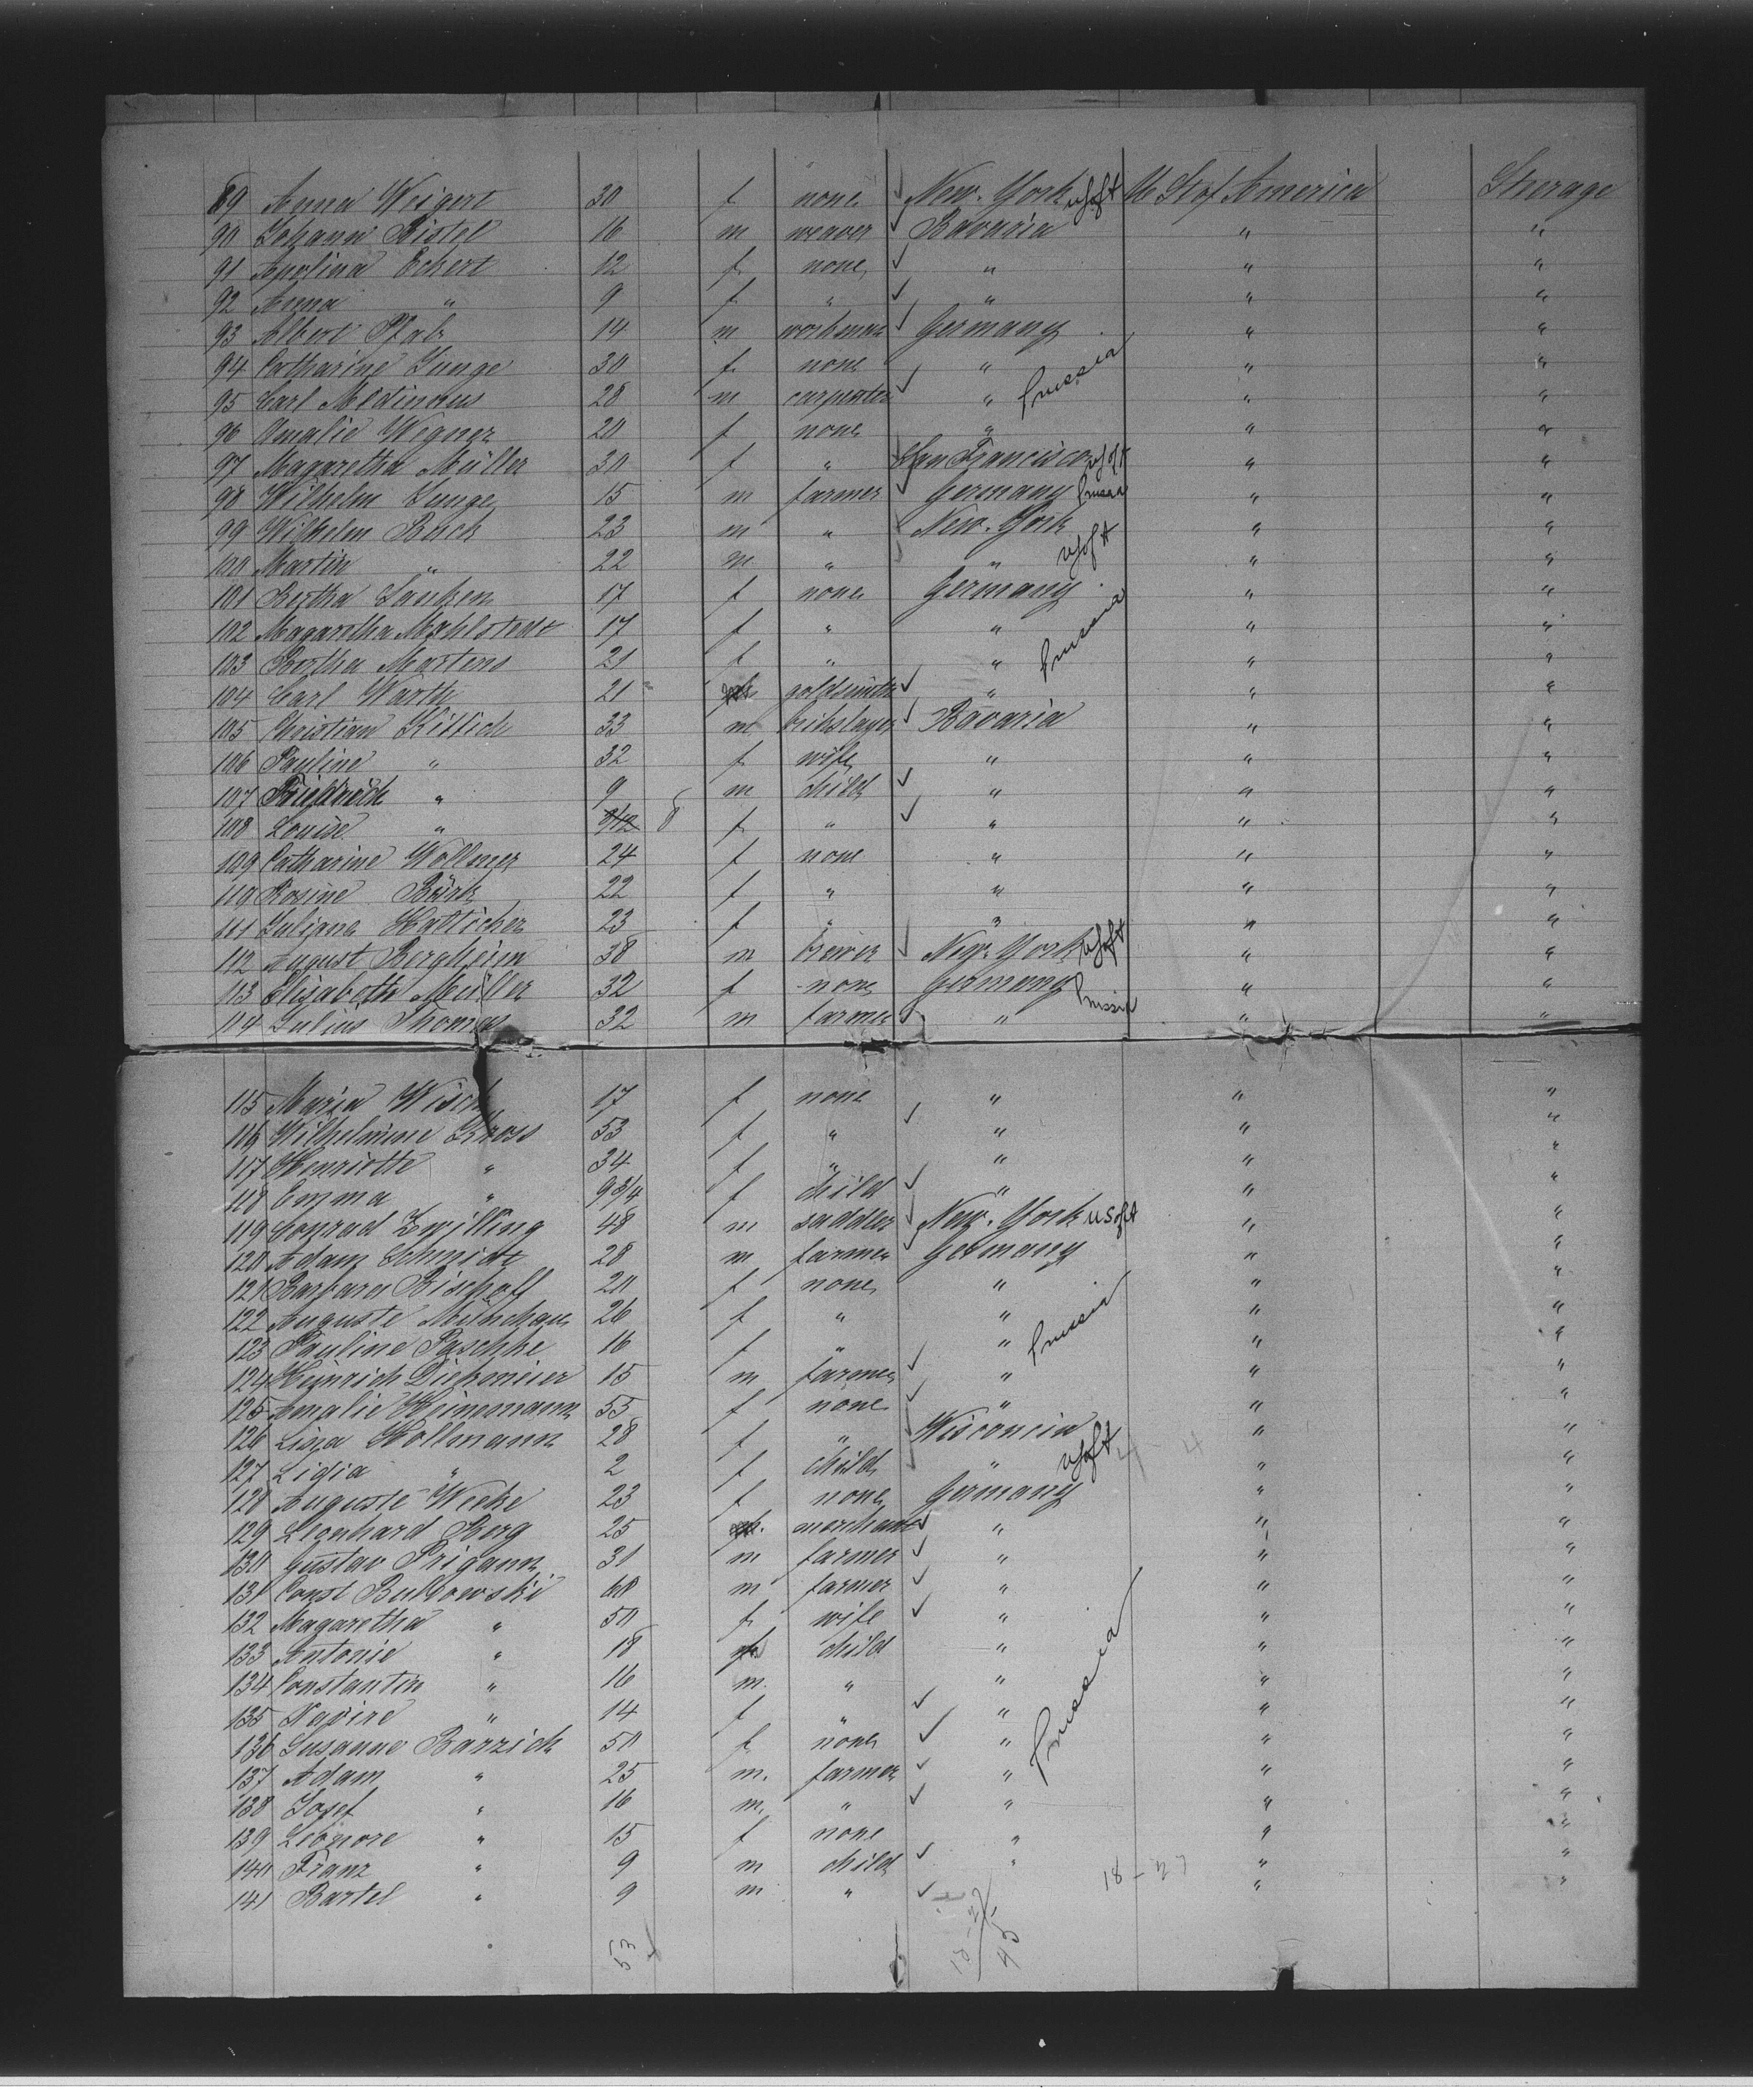 89 Anna Weigert 30 f none New-York U S of A U St of America Steerage
90 Johann Bistel 16 m weaver Bavaria " "
91 Apolina Eckert 12 f none " " "
92 Anna " 9 f " " " "
93 Albert Pfalz 14 m workman Germany " "
94 Catharine Junge 30 f none " " "
95 Carl 28 m carpenter " Prussia " "
96 Amalie Wegner 20 f none " " "
97 Magaretha Müller 30 f " San Francisco U S of A " "
98 Wilhelm Junge 15 m farmer Germany Prussia " "
99 Wilhelm Buck 23 m " New-York " "
100 Martin " 22 m " " U S of A " "
101 Bertha 17 f none Germany " "
102 Magaretha Mahlstedt 17 f " " Prussia " "
103 Bertha Martens 21 f " " " "
104 Carl Warth 21 goldsmith " " "
105 Christian Kittich 33 m brikslayer Bavaria " "
106 Pauline " 32 f wife " " "
107 Friedrich " 9 m child " " "
108 Louise " 9/12 8 f " " " "
109 Catharine Wollmer 24 f none " " "
110 Rosine 22 f " " " "
111 Juliana 23 f " " " "
112 August Bergheim 38 m brewer New-York U S of A " "
113 Elisabeth Müller 32 f none Germany Prussia " "
114 Julius Thomas 32 m farmer " " "
115 Maria Wisch 17 f none " " "
116 Wilhelmine 53 f " " " "
117 Henriette " 34 f " " " "
118 Emma " 9 3/4 f child " " "
119 Conrad Zwilling 48 m saddler New-York U S of A " "
120 Adam Schmidt 28 m farmer Germany " "
121 Barbara Bischoff 20 f none " " "
122 Auguste 26 f " " Prussia " "
123 Pauline Paschke 16 f " " " "
124 Heinrich Diekmeier 15 m farmer " " "
125 Amalie Heinemann 55 f none " " "
126 Lisza Hollmann 28 f " Wisconcin " "
127 Ligia " 2 f child " U S of A 4 - 4 " "
128 Auguste Weeke 23 f none Germany " "
129 Leonhard Berg 25 merchant " " "
130 Gustav Prigann 31 m farmer " " "
131 Const Bulkowski 60 m farmer " " "
132 Magaretha " 50 f wife " " "
133 Antonie " 18 child " " "
134 Constantin " 16 m. " " Prussia " "
135 " 14 f " " " "
136 Susanne Barzich 50 f none " " "
137 Adam " 25 m. farmer " " "
138 Josef " 16 m. " " " "
139 Leonore " 15 f none " " "
140 Franz " 9 m child " 18 - 27 " "
141 Bartel " 9 m " " "
53 45